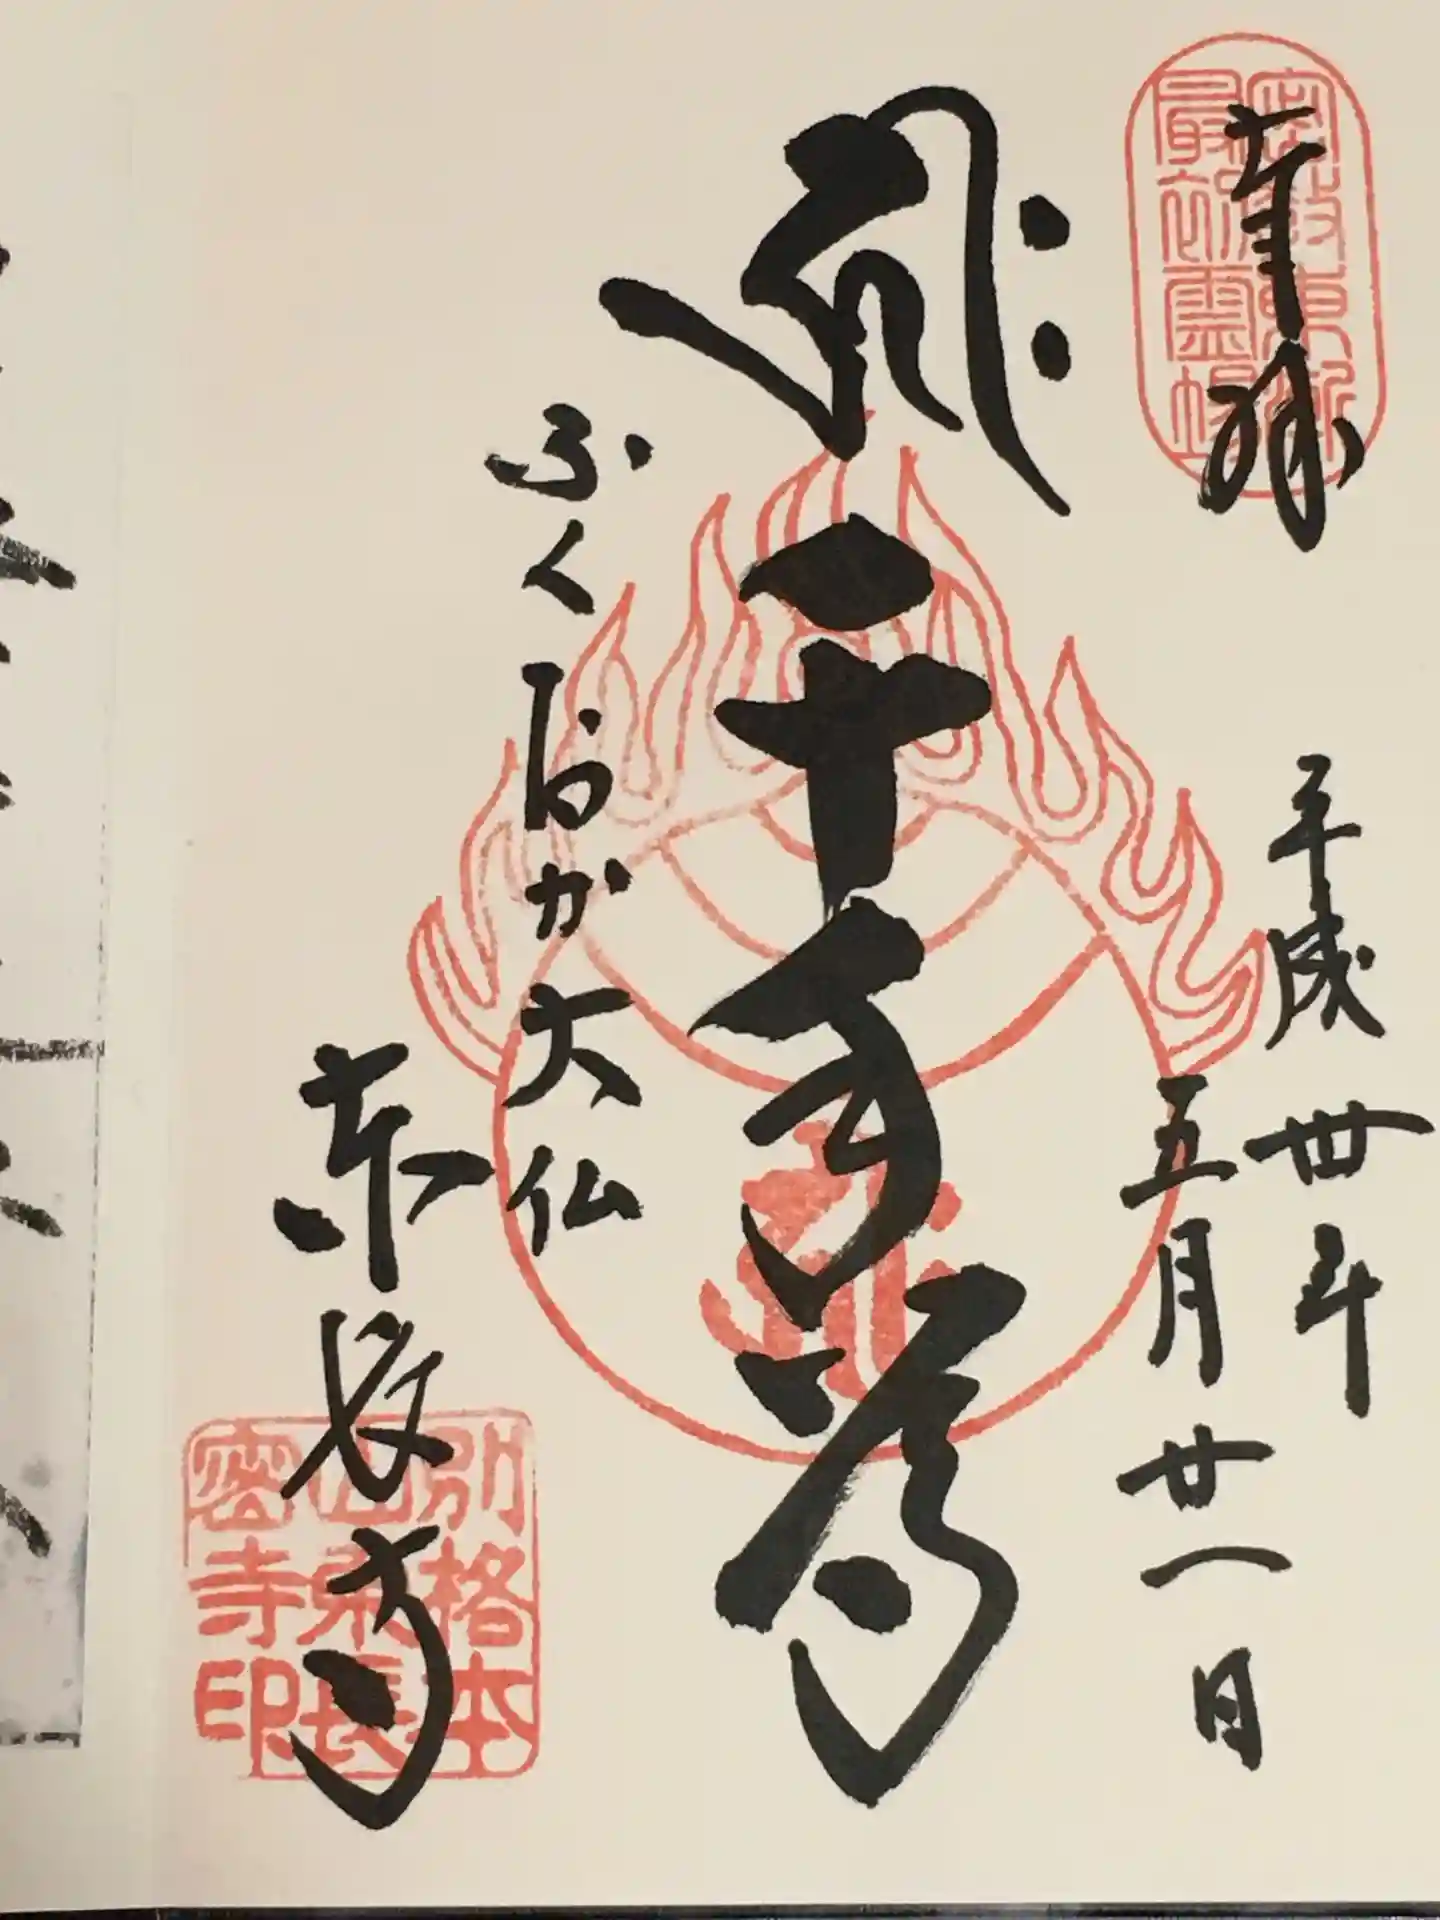 密教東漸
最初霊場
奉拝
平成卅年
五月廿一日
千手尊
ふくおか大仏
東長寺
別格本
山東長
密寺印